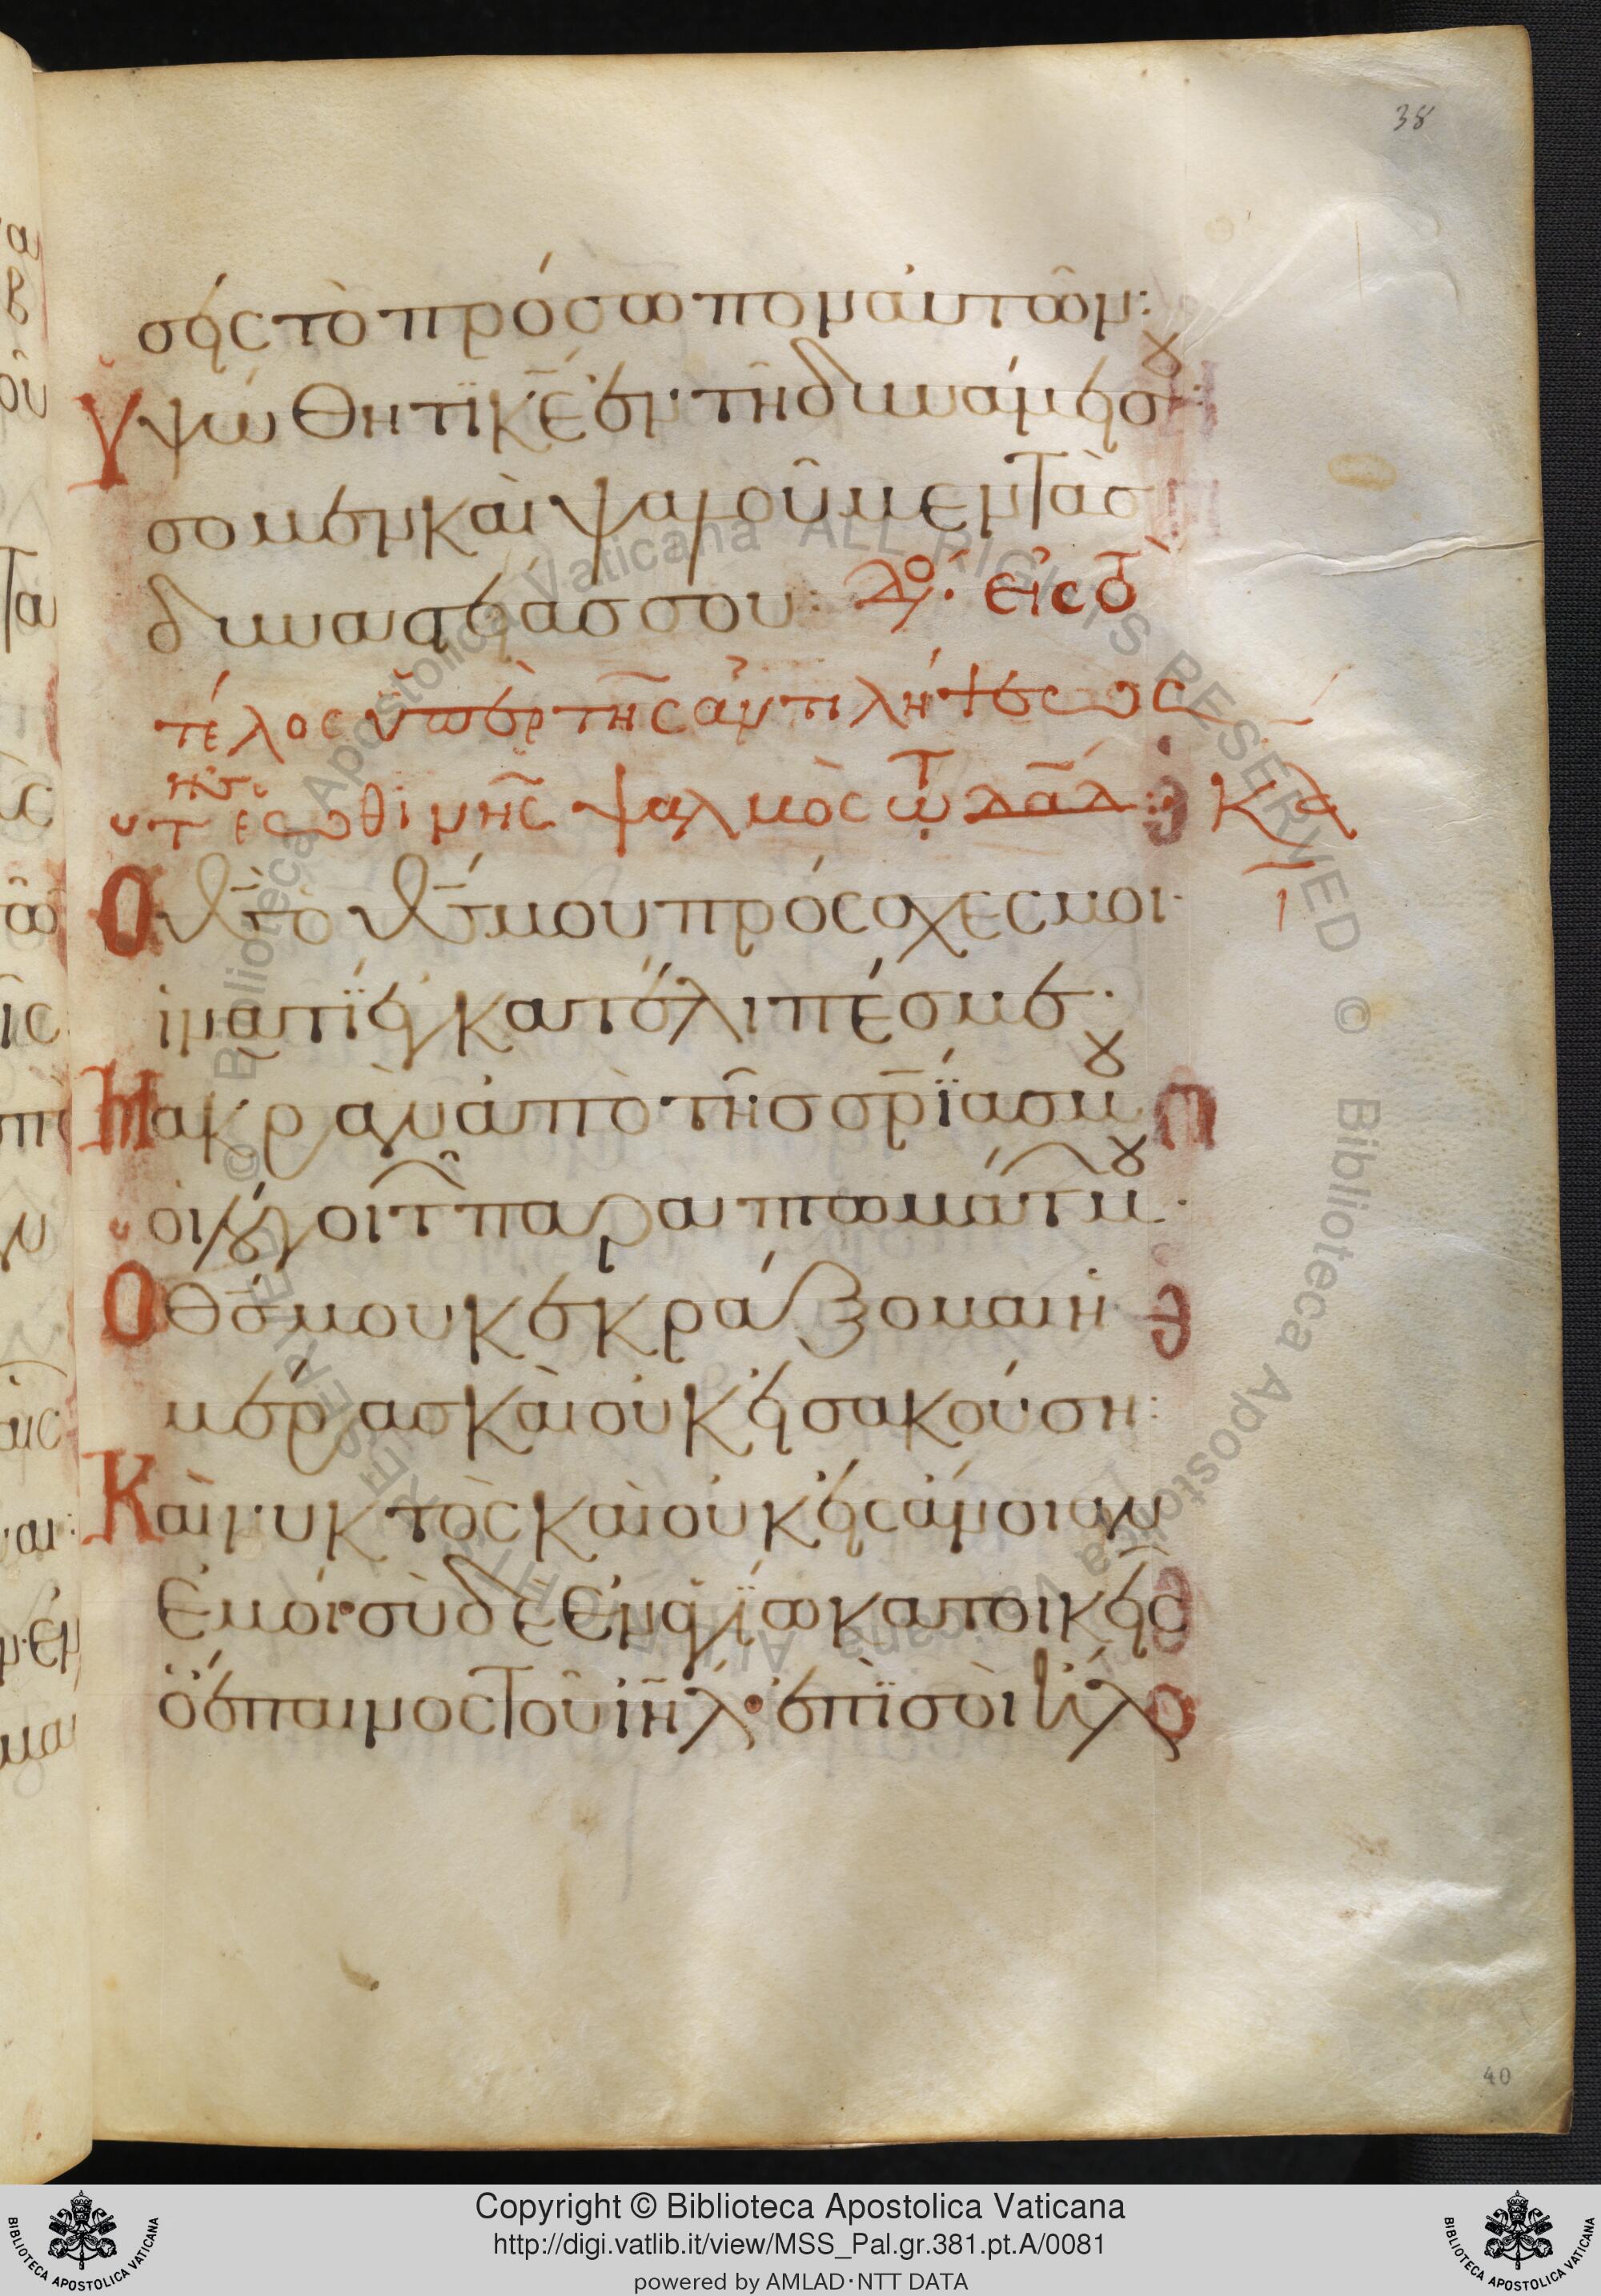 38
σεις τὸ πρόσωπον αὐτῶν:
Ὑψώθητι κ̅ε̅ ἐν τῆ δυνάμει σου:
ᾄσομεν καὶ ψαλοῦμεν τὰσ
δυναστείασ σου: εἰς τὸ
τέλος ὑπὲρ τῆς ἀντιλήψεως
τῆς ἑωθινῆς ψαλμὸς τῷ δα̅δ: κα
Ὁ θ̅ς̅ ὁ θ̅ς̅ μου πρόσχες μοι·
ἱνατί ἐγκατέλιπές με·
Μακρὰν ἀπὸ τῆσ σ̅ρ̅ίασ μου
οἱ λόγοι τῶν παραπτωμάτων μου·
Ὁ θ̅ς̅ μου κεκράξομαι ἡ
μέρασ καὶ οὐκ εἰσακούση:
Καὶ νυκτὸς καὶ οὐκ εἰς ἄνοιαν
ἐμοί· σὺ δὲ ἐν ἁγίω κατοικεῖς
ὁ ἔπαινος τοῦ ι̅η̅λ· ἐπὶ σοὶ ἤλ
40
Copyright © Biblioteca Apostolica Vaticana
http://digi.vatlib.it/view/MSS_Pal.gr.381.pt.A/0081
powered by AMLAD·NTT DATA
BIBLIOTECA APOSTOLICA VATICANA
BIBLIOTECA APOSTOLICA VATICANA